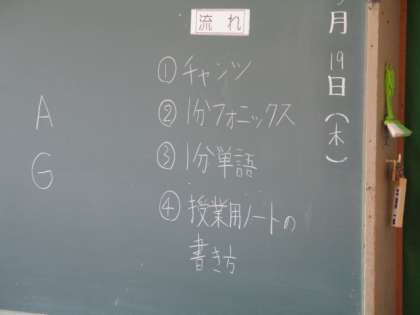 流れ
月19日(木)
①チャンツ
②1分フォニックス
③1分単語
④授業用ノートの
書き方
A
G